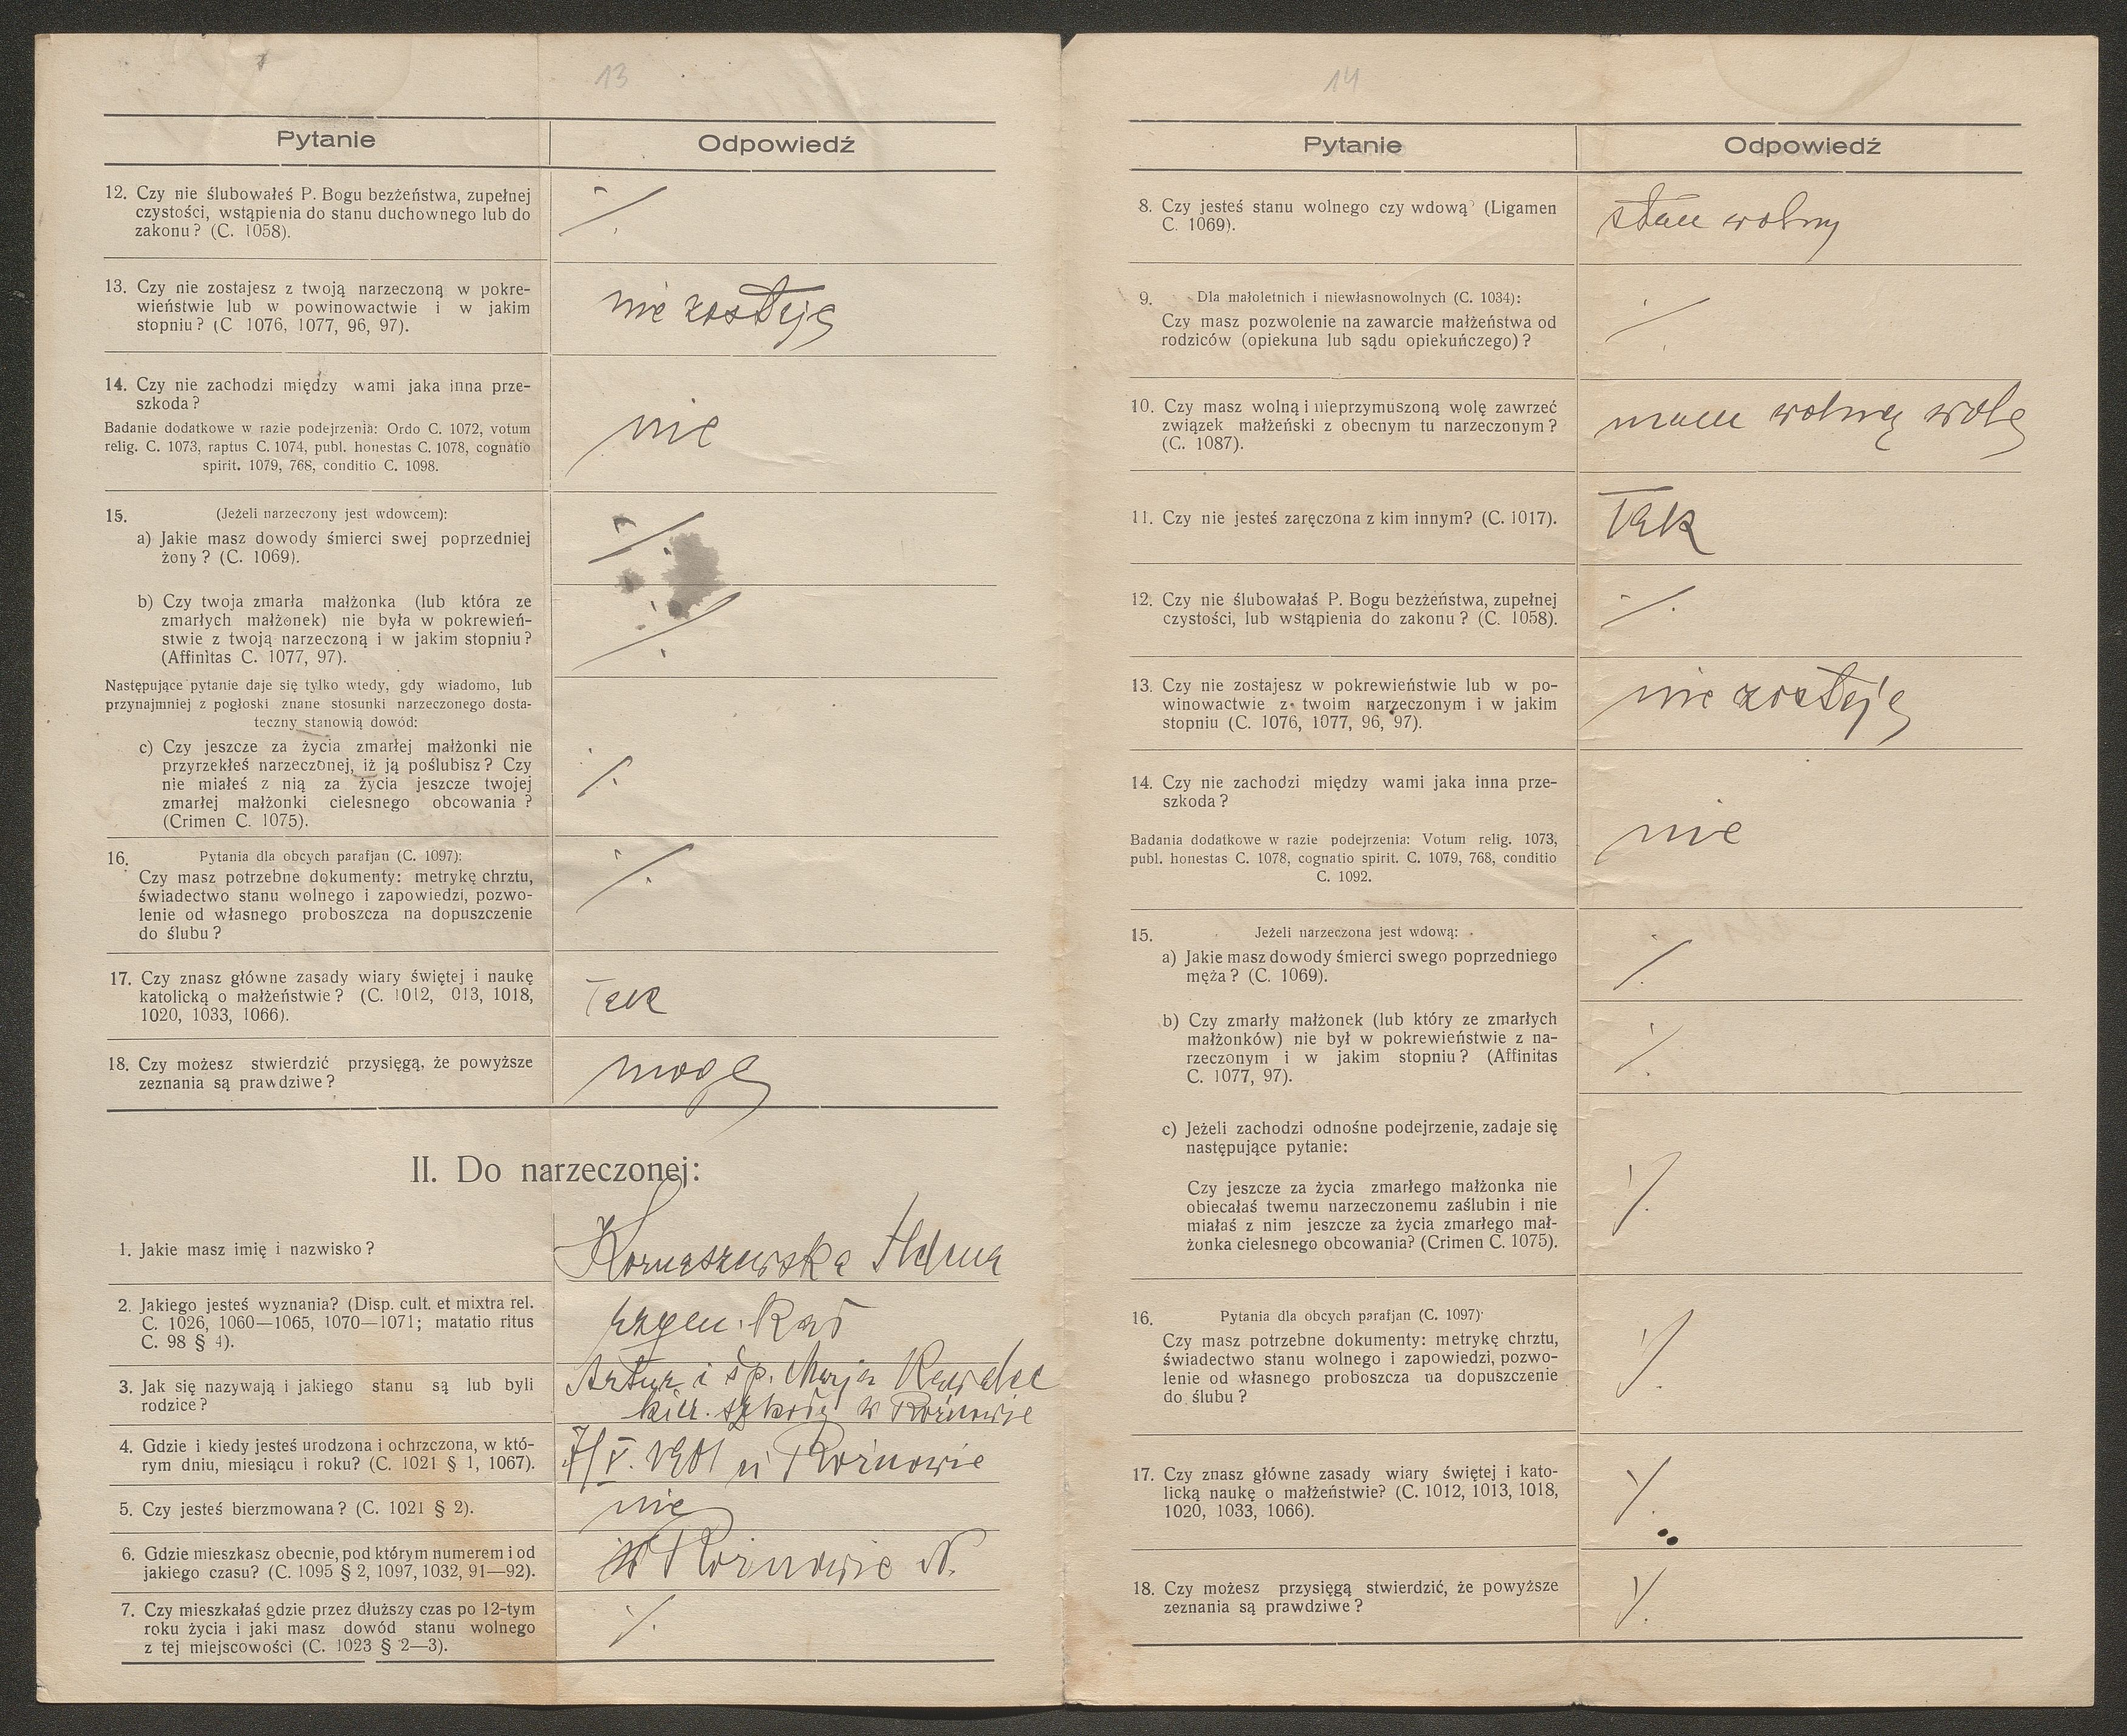 13
Pytanie
Odpowiedź
12. Czy nie ślubowałeś P. Bogu bezżeństwa, zupełnej
czystości, wstąpienia do stanu duchownego lub do
zakonu? (C. 1058).
13. Czy nie zostajesz z twoją narzeczoną w pokre-
wieństwie lub w powinowactwie i w jakim
stopniu? (C 1076, 1077, 96, 97).
nie zostaję
14. Czy nie zachodzi między wami jaka inna prze-
szkoda?
Badanie dodatkowe w razie podejrzenia: Ordo C. 1072, votum
relig. C. 1073, raptus C. 1074, publ. honestas C. 1078, cognatio
spirit. 1079, 768, conditio C. 1098.
nie
15. (Jeżeli narzeczony jest wdowcem):
a) Jakie masz dowody śmierci swej poprzedniej
żony? (C. 1069).
b) Czy twoja zmarła małżonka (lub która ze
zmarłych małżonek) nie była w pokrewień-
stwie z twoją narzeczoną i w jakim stopniu?
(Affinitas C. 1077, 97).
Następujące pytanie daje się tylko wtedy, gdy wiadomo, lub
przynajmniej z pogłoski znane stosunki narzeczonego dosta-
teczny stanowią dowód:
c) Czy jeszcze za życia zmarłej małżonki nie
przyrzekłeś narzeczonej, iż ją poślubisz? Czy
nie miałeś z nią za życia jeszcze twojej
zmarłej małżonki cielesnego obcowania?
(Crimen C. 1075).
16. Pytania dla obcych parafjan (C. 1097):
Czy masz potrzebne dokumenty: metrykę chrztu,
świadectwo stanu wolnego i zapowiedzi, pozwo-
lenie od własnego proboszcza na dopuszczenie
do ślubu?
17. Czy znasz główne zasady wiary świętej i naukę
katolicką o małżeństwie? (C. 1012, 013, 1018,
1020, 1033, 1066).
Tak
18. Czy możesz stwierdzić przysięgą, że powyższe
zeznania są prawdziwe?
mogę
II. Do narzeczonej:
1. Jakie masz imię i nazwisko?
2. Jakiego jesteś wyznania? (Disp. cult. et mixtra rel.
C. 1026, 1060—1065, 1070—1071; matatio ritus
C. 98 § 4).
3. Jak się nazywają i jakiego stanu są lub byli
rodzice?
Artur i śp. Marja
kier. szkoły w Rożnowie
4. Gdzie i kiedy jesteś urodzona i ochrzczona, w któ-
rym dniu, miesiącu i roku? (C. 1021 § 1, 1067).
7/V. 1901 w Rożnowie
5. Czy jesteś bierzmowana? (C. 1021 § 2).
nie
6. Gdzie mieszkasz obecnie, pod którym numerem i od
jakiego czasu? (C. 1095 § 2, 1097, 1032, 91—92).
W Rożnowie N.
7. Czy mieszkałaś gdzie przez dłuższy czas po 12-tym
roku życia i jaki masz dowód stanu wolnego
z tej miejscowości (C. 1023 § 2—3).
14
Pytanie
Odpowiedź
8. Czy jesteś stanu wolnego czy wdową? (Ligamen
C. 1069).
stan wolny
9. Dla małoletnich i niewłasnowolnych (C. 1034):
Czy masz pozwolenie na zawarcie małżeństwa od
rodziców (opiekuna lub sądu opiekuńczego)?
10. Czy masz wolną i nieprzymuszoną wolę zawrzeć
związek małżeński z obecnym tu narzeczonym?
(C. 1087).
mam wolną wolę
11. Czy nie jesteś zaręczona z kim innym? (C. 1017).
Tak
12. Czy nie ślubowałaś P. Bogu bezżeństwa, zupełnej
czystości, lub wstąpienia do zakonu? (C. 1058).
13. Czy nie zostajesz w pokrewieństwie lub w po-
winowactwie z twoim narzeczonym i w jakim
stopniu (C. 1076, 1077, 96, 97).
nie zostaję
14. Czy nie zachodzi między wami jaka inna prze-
szkoda?
Badania dodatkowe w razie podejrzenia: Votum relig. 1073,
publ. honestas C. 1078, cognatio spirit. C. 1079, 768, conditio
C. 1092.
nie
15. Jeżeli narzeczona jest wdową:
a) Jakie masz dowody śmierci swego poprzedniego
męża? (C. 1069).
b) Czy zmarły małżonek (lub który ze zmarłych
małżonków) nie był w pokrewieństwie z na-
rzeczonym i w jakim stopniu? (Affinitas
C. 1077, 97).
c) Jeżeli zachodzi odnośne podejrzenie, zadaje się
następujące pytanie:
Czy jeszcze za życia zmarłego małżonka nie
obiecałaś twemu narzeczonemu zaślubin i nie
miałaś z nim jeszcze za życia zmarłego mał-
żonka cielesnego obcowania? (Crimen C. 1075).
16. Pytania dla obcych parafjan (C. 1097)
Czy masz potrzebne dokumenty: metrykę chrztu,
świadectwo stanu wolnego i zapowiedzi, pozwo-
lenie od własnego proboszcza na dopuszczenie
do ślubu?
17. Czy znasz główne zasady wiary świętej i kato-
licką naukę o małżeństwie? (C. 1012, 1013, 1018,
1020, 1033, 1066).
18. Czy możesz przysięgą stwierdzić, że powyższe
zeznania są prawdziwe?